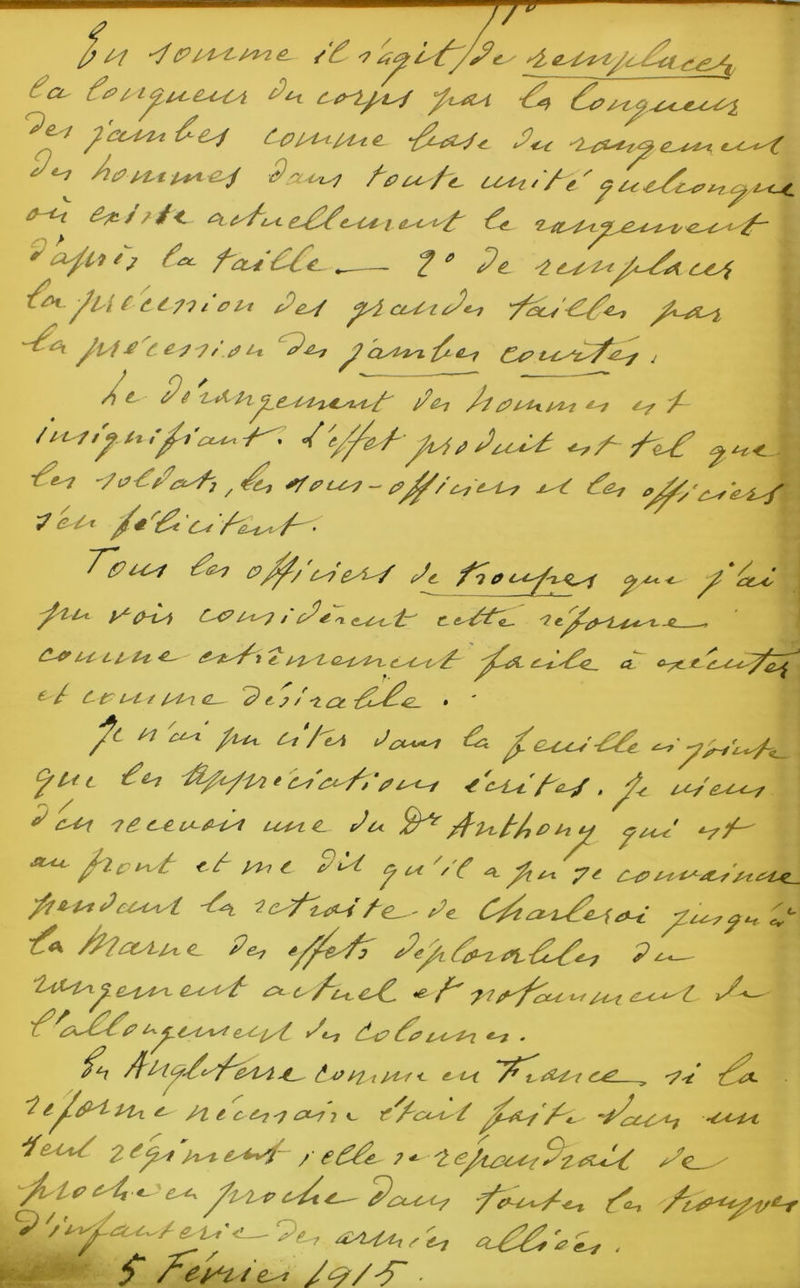 En somme il s'agit 1° de remplacer
la longueur du corps par la longueur
des jambes comme base du rangement
des hommes dans toute unité quelconque
où existe actuellement le rangement
d'après la taille. — 2° De remplacer
la précession des grandes tailles par
la précession des jambes courtes.
Le dérangement des hommes est
insignifiant. L'effet produit est tel que
les soldats, les sous-officiers et les officiers
s'en félicitent.
Tous les officiers de troupes que j'ai
pu voir considèrent cette réforme
comme extrêmement facile à exécuter
et comme désirable.
Je n'ai pu citer dans la feuille ci-jointe
que les appréciations écrites. Je viens
d'en recevoir une du Dr Anthony qui est
au front et me dit qu'il a pu se convaincre
pendant la retraite de Charleroi jusqu'à
la Marne des effets déplorables du
rangement actuel et notamment de
l'allongement des colonnes.
En Angleterre comme en France, si la
réforme nécessaire était faite dans un
seul régiment, elle se répandrait de
proche en proche dans toutes les troupes
d'infanterie des armées alliées.
5 Février 1915.